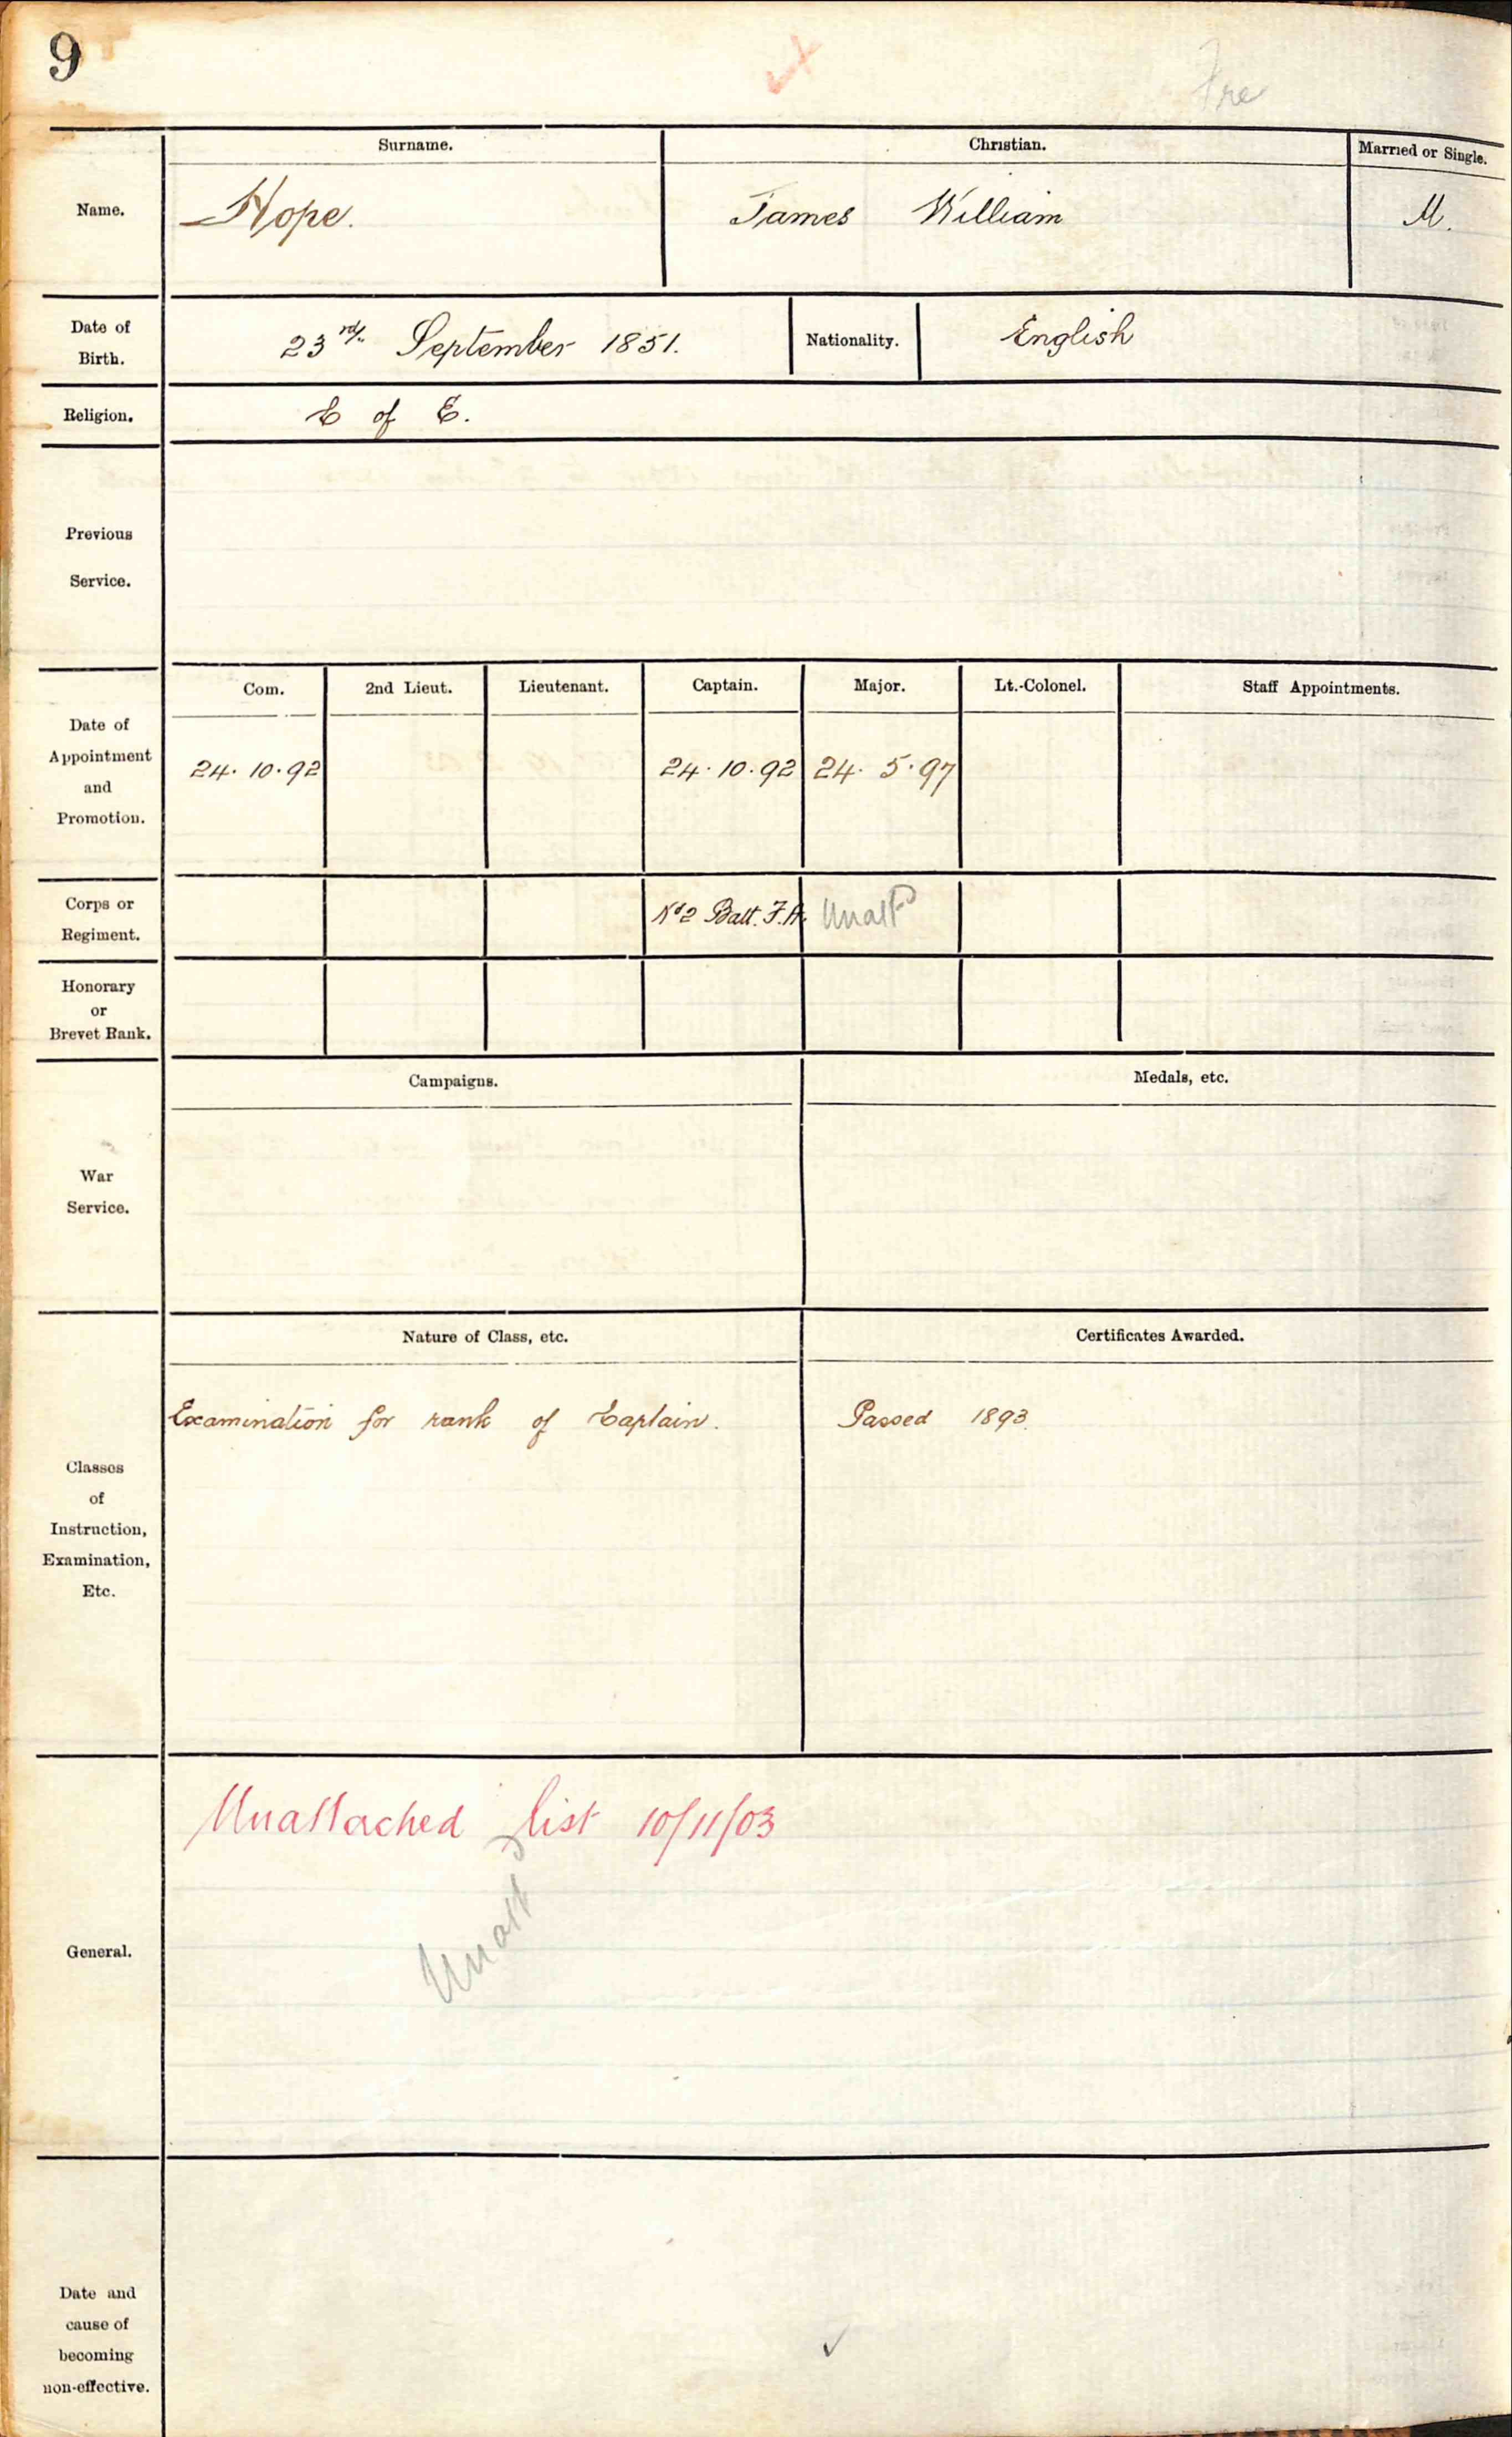 9
Fre
Surname. Christian. Married or Single.
Name. Hope. James William M.
Date of Birth. 23rd. September 1851. Nationality. English
Religion. C of E.
Previous Service.
Com. 2nd Lieut. Lieutenant. Captain. Major. Lt.-Colonel. Staff Appointments.
Date of Appointment and Promotion. 24.10.92 24.10.92 24.5.97
Corps or Regiment. No 2 Batt. F.A. Unattd
Honorary or Brevet Rank.
Campaigns. Medals, etc.
War Service.
Nature of Class, etc. Certificates Awarded.
Examination for rank of Captain. Passed 1893.
Classes of Instruction, Examination, Etc.
Unattached list 10/11/03
Unattd
General.
Date and cause of becoming non-effective.